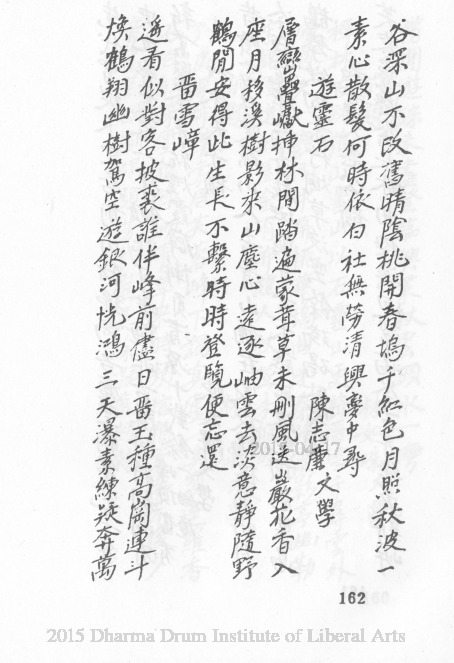 谷深山不改舊晴陰桃開春塢千紅色月照秋波一
素心散髮何時依白社無勞清興夢中尋
遊靈石 陳志農文學
層巒疊巘插林間踏遍蒙茸草未刪風送巖花香入
座月移溪樹影來山塵心遠逐岫雲去淡意靜隨野
鶴閒安得此生長不繫時時登覽便忘還
畨雪嶂
遙看似對客披裘誰伴峰前儘日畨玉種高崗連斗
煥鶴翔幽樹駕空遊銀河恍瀉三天瀑素練疑奔萬
162
2015 Dharma Drum Institute of Liberal Arts